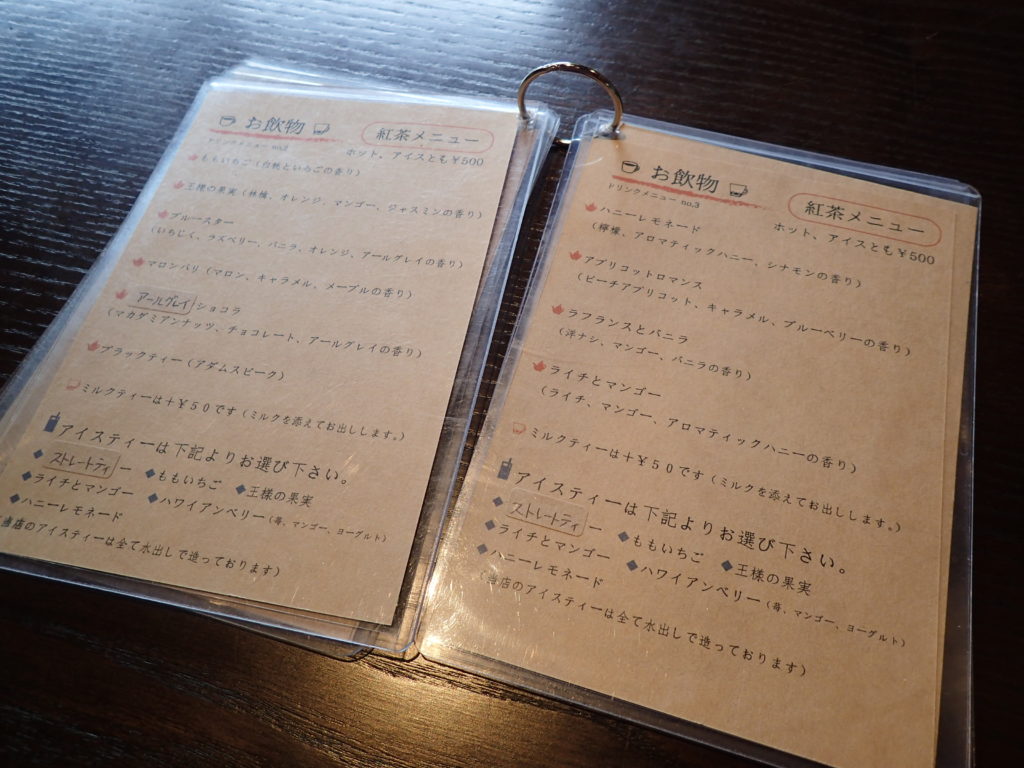 お飲物
紅茶メニュー
ドリンクメニュー no.2
ホット、アイスとも￥500
ももいちご（白桃といちごの香り）
王様の果実（林檎、オレンジ、マンゴー、ジャスミンの香り）
ブルースター
（いちじく、ラズベリー、バニラ、オレンジ、アールグレイの香り）
マロンパリ（マロン、キャラメル、メープルの香り）
アールグレイショコラ
（マカダミアンナッツ、チョコレート、アールグレイの香り）
ブラックティー（アダムスピーク）
ミルクティーは＋￥５０です（ミルクを添えてお出しします。）
アイスティーは下記よりお選び下さい。
◆ストレートティー ◆ももいちご ◆王様の果実
◆ライチとマンゴー ◆ハワイアンベリー（苺、マンゴー、ヨーグルト）
◆ハニーレモネード
当店のアイスティーは全て水出しで造っております）
お飲物
紅茶メニュー
ドリンクメニュー no.3
ホット、アイスとも￥500
ハニーレモネード
（檸檬、アロマティックハニー、シナモンの香り）
アプリコットロマンス
（ピーチアプリコット、キャラメル、ブルーベリーの香り）
ラフランスとバニラ
（洋ナシ、マンゴー、バニラの香り）
ライチとマンゴー
（ライチ、マンゴー、アロマティックハニーの香り）
ミルクティーは＋￥５０です（ミルクを添えてお出しします。）
アイスティーは下記よりお選び下さい。
◆ストレートティー ◆ももいちご ◆王様の果実
◆ライチとマンゴー ◆ハワイアンベリー（苺、マンゴー、ヨーグルト）
◆ハニーレモネード
（当店のアイスティーは全て水出しで造っております）